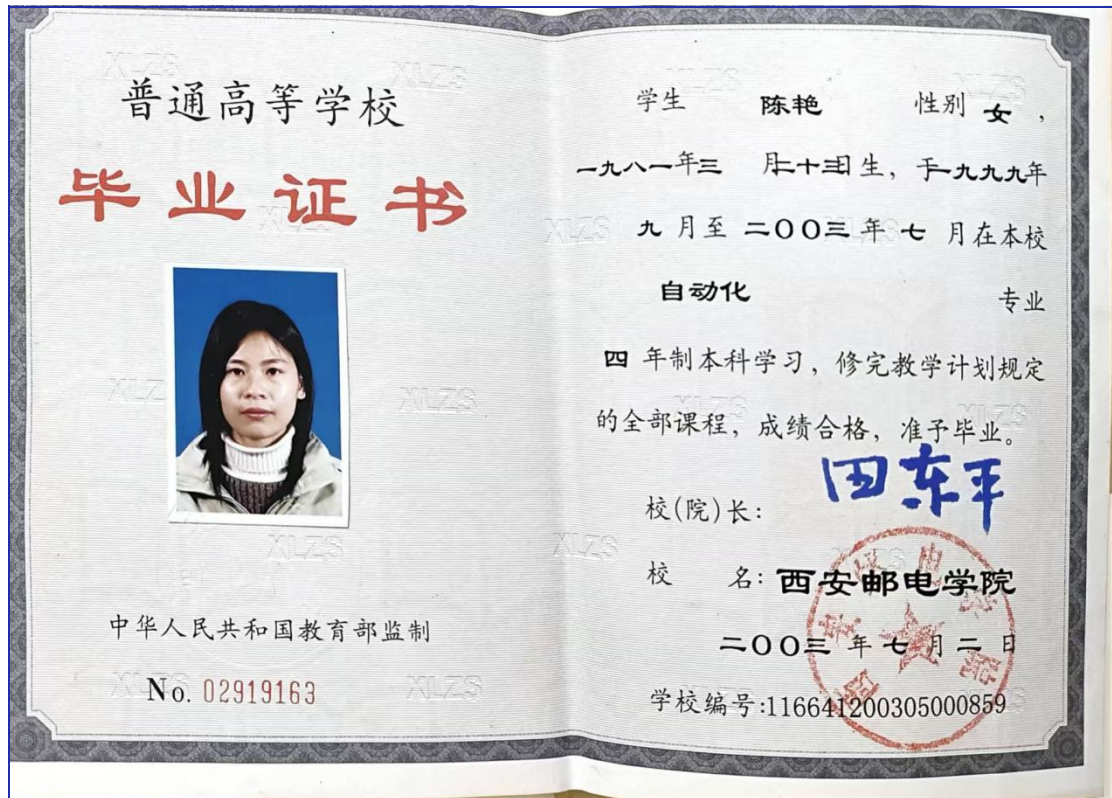 普通高等学校
毕业证书
中华人民共和国教育部监制
No. 02919163
学生 陈艳 性别 女，
一九八一年三 月二十三日生，于一九九九年
九 月至 二〇〇三 年 七 月在本校
自动化 专业
四 年制本科学习，修完教学计划规定
的全部课程，成绩合格，准予毕业。
校(院)长: 田东平
校 名: 西安邮电学院
二〇〇三 年 七 月 二 日
学校编号:116641200305000859
西安邮电学院
XLZS